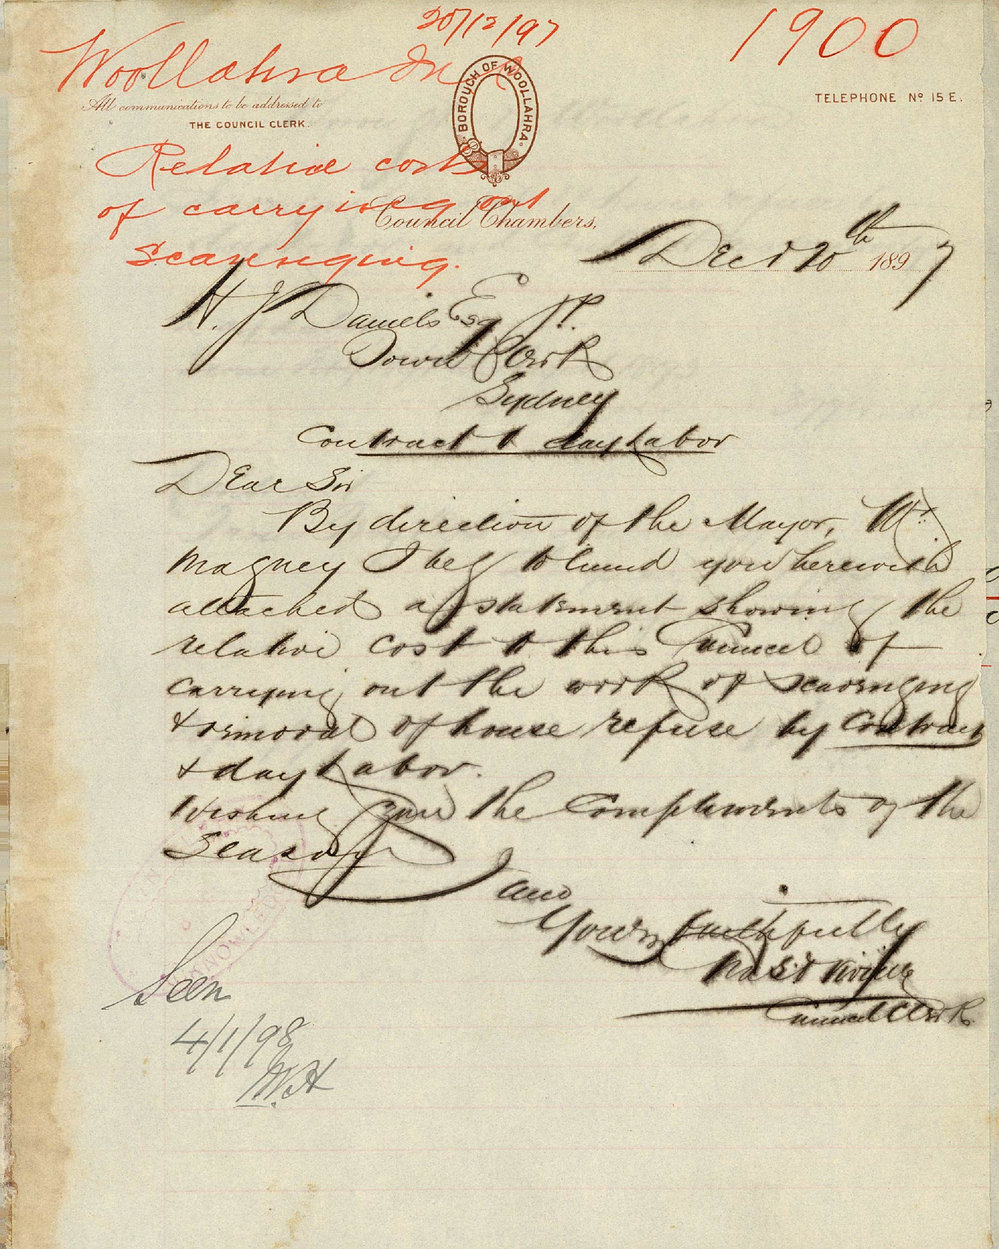 20/12/97
1900
Woollahra
BOROUGH OF WOOLLAHRA.
All communications to be addressed to
THE COUNCIL CLERK.
TELEPHONE Nº 15 E.
Relative cost
of carrying out
Scavenging.
Council Chambers,
Decr 20th 1897
H. J. Daniels Esq J.P.
Town Clerk
Sydney
Contract & day Labor
Dear Sir
By direction of the Mayor, Mr.
Magney I beg to hand you herewith
attached a statement showing the
relative cost to this Council of
carrying out the work of scavenging
& removal of house refuse by Contract
& day Labor.
Wishing you the Compliments of the
Season
I am
Yours faithfully
Council Clerk
Seen
4/1/98